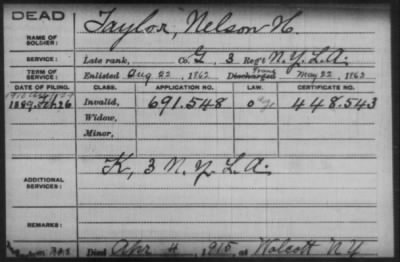 DEAD
NAME OF SOLDIER: Taylor, Nelson H.
SERVICE: Late rank, Co. G, 3 Reg't N.Y.L.A.
TERM OF SERVICE: Enlisted Aug 22, 1862 Discharged May 22, 1863
DATE OF FILING. CLASS. APPLICATION NO. LAW. CERTIFICATE NO.
1889 Feb 26 Invalid, 691.548 448.543
Widow,
Minor,
ADDITIONAL SERVICES: K, 3 N.Y. L.A.
REMARKS:
Died Apr 4, 1915, at Wolcott N Y